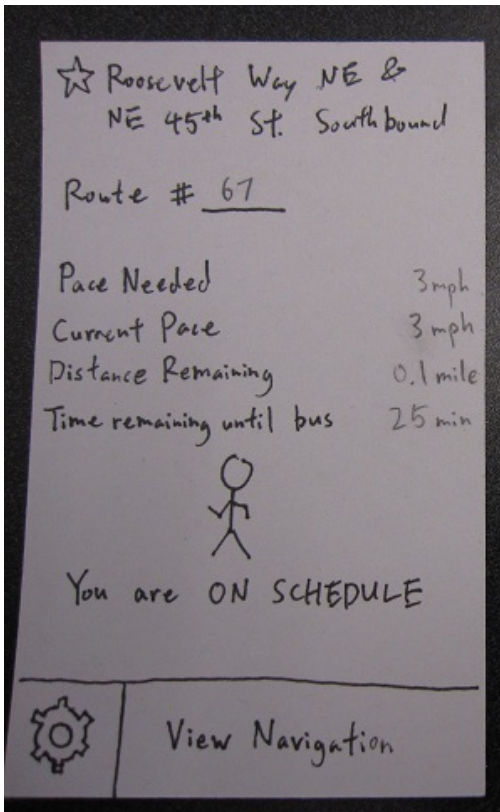 Roosevelt Way NE &
NE 45th St. Southbound
Route # 67
Pace Needed 3 mph
Current Pace 3 mph
Distance Remaining 0.1 mile
Time remaining until bus 25 min
You are ON SCHEDULE
View Navigation